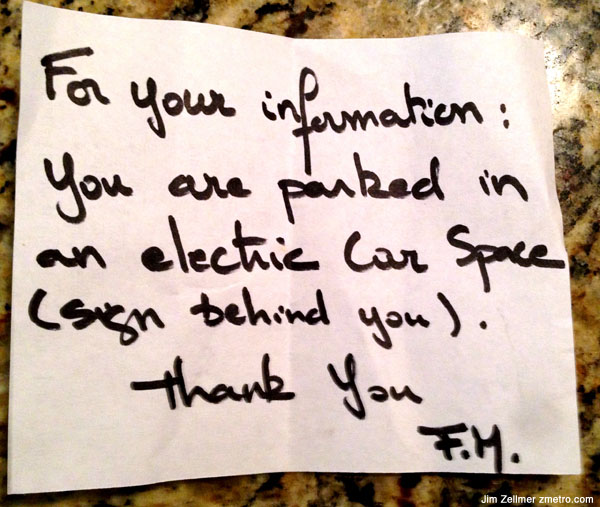 For your information :
You are parked in
an electric Car Space
(sign behind you).
Thank You
F.M.
Jim Zellmer zmetro.com